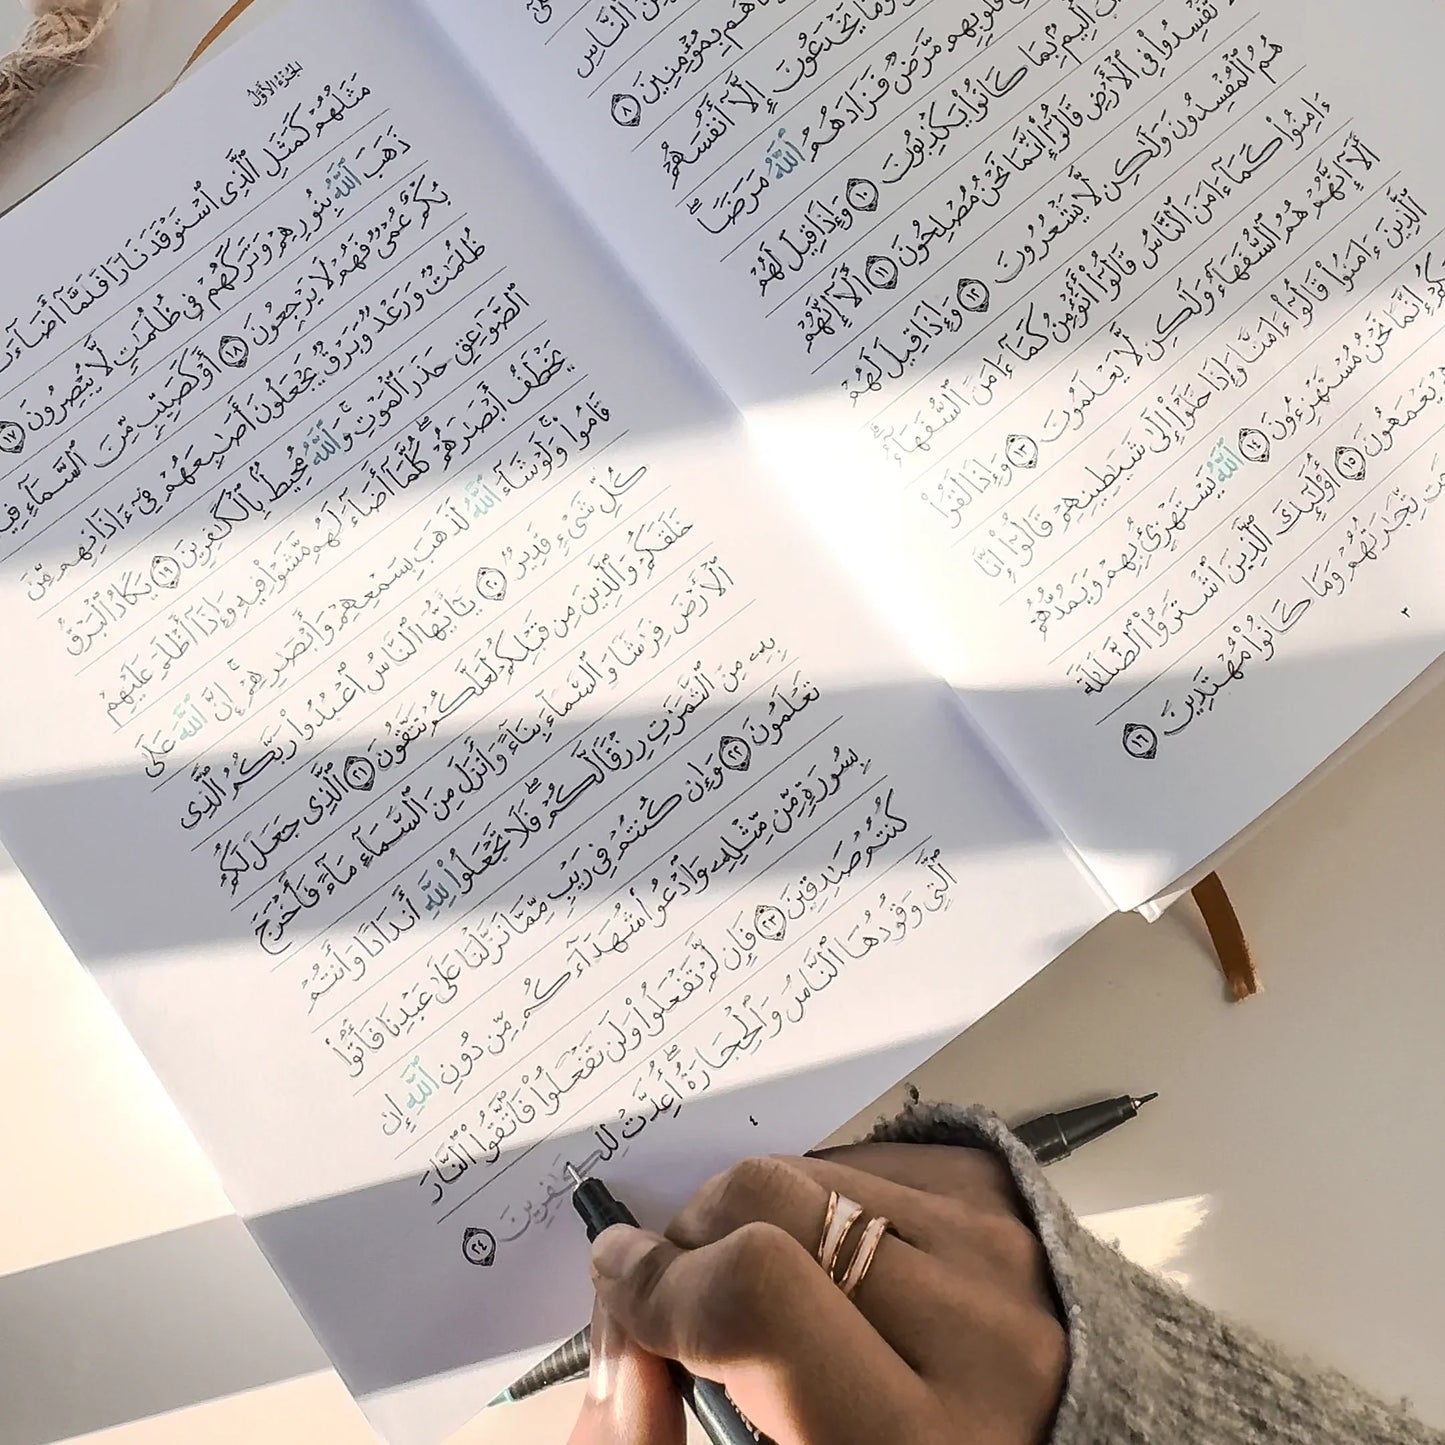 ٱلنَّاسِ
هُم بِمُؤْمِنِينَ ٨
وَمَا يَخْدَعُونَ إِلَّآ أَنفُسَهُمْ
قُلُوبِهِم مَّرَضٌ فَزَادَهُمُ ٱللَّهُ مَرَضًا ۖ
أَلِيمٌۢ بِمَا كَانُوا۟ يَكْذِبُونَ ١٠ وَإِذَا قِيلَ لَهُمْ
تُفْسِدُوا۟ فِى ٱلْأَرْضِ قَالُوٓا۟ إِنَّمَا نَحْنُ مُصْلِحُونَ ١١ أَلَآ إِنَّهُمْ
هُمُ ٱلْمُفْسِدُونَ وَلَـٰكِن لَّا يَشْعُرُونَ ١٢ وَإِذَا قِيلَ لَهُمْ
ءَامِنُوا۟ كَمَآ ءَامَنَ ٱلنَّاسُ قَالُوٓا۟ أَنُؤْمِنُ كَمَآ ءَامَنَ ٱلسُّفَهَآءُ ۗ
أَلَآ إِنَّهُمْ هُمُ ٱلسُّفَهَآءُ وَلَـٰكِن لَّا يَعْلَمُونَ ١٣ وَإِذَا لَقُوا۟
ٱلَّذِينَ ءَامَنُوا۟ قَالُوٓا۟ ءَامَنَّا وَإِذَا خَلَوْا۟ إِلَىٰ شَيَـٰطِينِهِمْ قَالُوٓا۟ إِنَّا
إِنَّمَا نَحْنُ مُسْتَهْزِءُونَ ١٤ ٱللَّهُ يَسْتَهْزِئُ بِهِمْ وَيَمُدُّهُمْ
يَعْمَهُونَ ١٥ أُو۟لَـٰٓئِكَ ٱلَّذِينَ ٱشْتَرَوُا۟ ٱلضَّلَـٰلَةَ
تِّجَـٰرَتُهُمْ وَمَا كَانُوا۟ مُهْتَدِينَ ١٦
٣
الجزء الأول
مَثَلُهُمْ كَمَثَلِ ٱلَّذِى ٱسْتَوْقَدَ نَارًا فَلَمَّآ أَضَآءَتْ
ذَهَبَ ٱللَّهُ بِنُورِهِمْ وَتَرَكَهُمْ فِى ظُلُمَـٰتٍ لَّا يُبْصِرُونَ ١٧
بُكْمٌ عُمْىٌ فَهُمْ لَا يَرْجِعُونَ ١٨ أَوْ كَصَيِّبٍ مِّنَ ٱلسَّمَآءِ فِيهِ
ظُلُمَـٰتٌ وَرَعْدٌ وَبَرْقٌ يَجْعَلُونَ أَصَـٰبِعَهُمْ فِىٓ ءَاذَانِهِم مِّنَ
ٱلصَّوَٰعِقِ حَذَرَ ٱلْمَوْتِ ۚ وَٱللَّهُ مُحِيطٌۢ بِٱلْكَـٰفِرِينَ ١٩ يَكَادُ ٱلْبَرْقُ
يَخْطَفُ أَبْصَـٰرَهُمْ ۖ كُلَّمَآ أَضَآءَ لَهُم مَّشَوْا۟ فِيهِ وَإِذَآ أَظْلَمَ عَلَيْهِمْ
قَامُوا۟ ۚ وَلَوْ شَآءَ ٱللَّهُ لَذَهَبَ بِسَمْعِهِمْ وَأَبْصَـٰرِهِمْ ۚ إِنَّ ٱللَّهَ عَلَىٰ
كُلِّ شَىْءٍ قَدِيرٌ ٢٠ يَـٰٓأَيُّهَا ٱلنَّاسُ ٱعْبُدُوا۟ رَبَّكُمُ ٱلَّذِى
خَلَقَكُمْ وَٱلَّذِينَ مِن قَبْلِكُمْ لَعَلَّكُمْ تَتَّقُونَ ٢١ ٱلَّذِى جَعَلَ لَكُمُ
ٱلْأَرْضَ فِرَٰشًا وَٱلسَّمَآءَ بِنَآءً وَأَنزَلَ مِنَ ٱلسَّمَآءِ مَآءً فَأَخْرَجَ
بِهِۦ مِنَ ٱلثَّمَرَٰتِ رِزْقًا لَّكُمْ ۖ فَلَا تَجْعَلُوا۟ لِلَّهِ أَندَادًا وَأَنتُمْ
تَعْلَمُونَ ٢٢ وَإِن كُنتُمْ فِى رَيْبٍ مِّمَّا نَزَّلْنَا عَلَىٰ عَبْدِنَا فَأْتُوا۟
بِسُورَةٍ مِّن مِّثْلِهِۦ وَٱدْعُوا۟ شُهَدَآءَكُم مِّن دُونِ ٱللَّهِ إِن
كُنتُمْ صَـٰدِقِينَ ٢٣ فَإِن لَّمْ تَفْعَلُوا۟ وَلَن تَفْعَلُوا۟ فَٱتَّقُوا۟ ٱلنَّارَ
ٱلَّتِى وَقُودُهَا ٱلنَّاسُ وَٱلْحِجَارَةُ ۖ أُعِدَّتْ لِلْكَـٰفِرِينَ ٢٤
٤